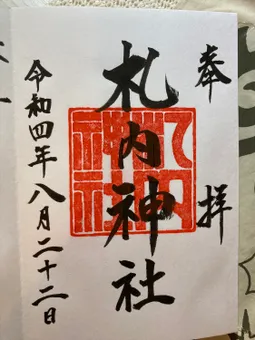 奉拝
札内神社
令和四年八月二十二日
札内神社